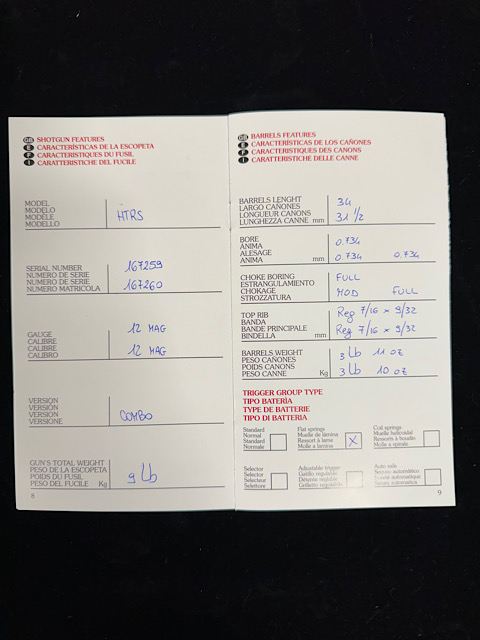 GB SHOTGUN FEATURES
E CARACTERÍSTICAS DE LA ESCOPETA
F CARACTERISTIQUES DU FUSIL
I CARATTERISTICHE DEL FUCILE
MODEL
MODELO
MODÈLE
MODELLO
HTRS
SERIAL NUMBER
NUMERO DE SERIE
NUMERO DE SERIE
NUMERO MATRICOLA
167259
167260
GAUGE
CALIBRE
CALIBRE
CALIBRO
12 MAG
12 MAG
VERSION
VERSIÓN
VERSION
VERSIONE
COMBO
GUN'S TOTAL WEIGHT
PESO DE LA ESCOPETA
POIDS DU FUSIL
PESO DEL FUCILE Kg
9 Lb
8
GB BARRELS FEATURES
E CARACTERÍSTICAS DE LOS CAÑONES
F CARACTERISTIQUES DES CANONS
I CARATTERISTICHE DELLE CANNE
BARRELS LENGHT
LARGO CAÑONES
LONGUEUR CANONS
LUNGHEZZA CANNE mm
34
31 1/2
BORE
ÁNIMA
ALESAGE
ANIMA mm
0.734
0.734 0.734
CHOKE BORING
ESTRANGULAMIENTO
CHOKAGE
STROZZATURA
FULL
MOD FULL
TOP RIB
BANDA
BANDE PRINCIPALE
BINDELLA mm
Reg 7/16 x 9/32
Reg 7/16 x 9/32
BARRELS WEIGHT
PESO CAÑONES
POIDS CANONS
PESO CANNE Kg
3 Lb 11 oz
3 Lb 10 oz
TRIGGER GROUP TYPE
TIPO BATERÍA
TYPE DE BATTERIE
TIPO DI BATTERIA
Standard
Normal
Standard
Normale
Flat springs
Muelle de lámina
Ressort à lame
Molle a lamina
X
Coil springs
Muelle helicoidal
Ressorts à boudin
Molle a spirale
Selector
Selector
Sélecteur
Selettore
Adjustable trigger
Gatillo regulable
Détente réglable
Grilletto regolabile
Auto safe
Seguro automático
Sûreté automatique
Sicura automatica
9